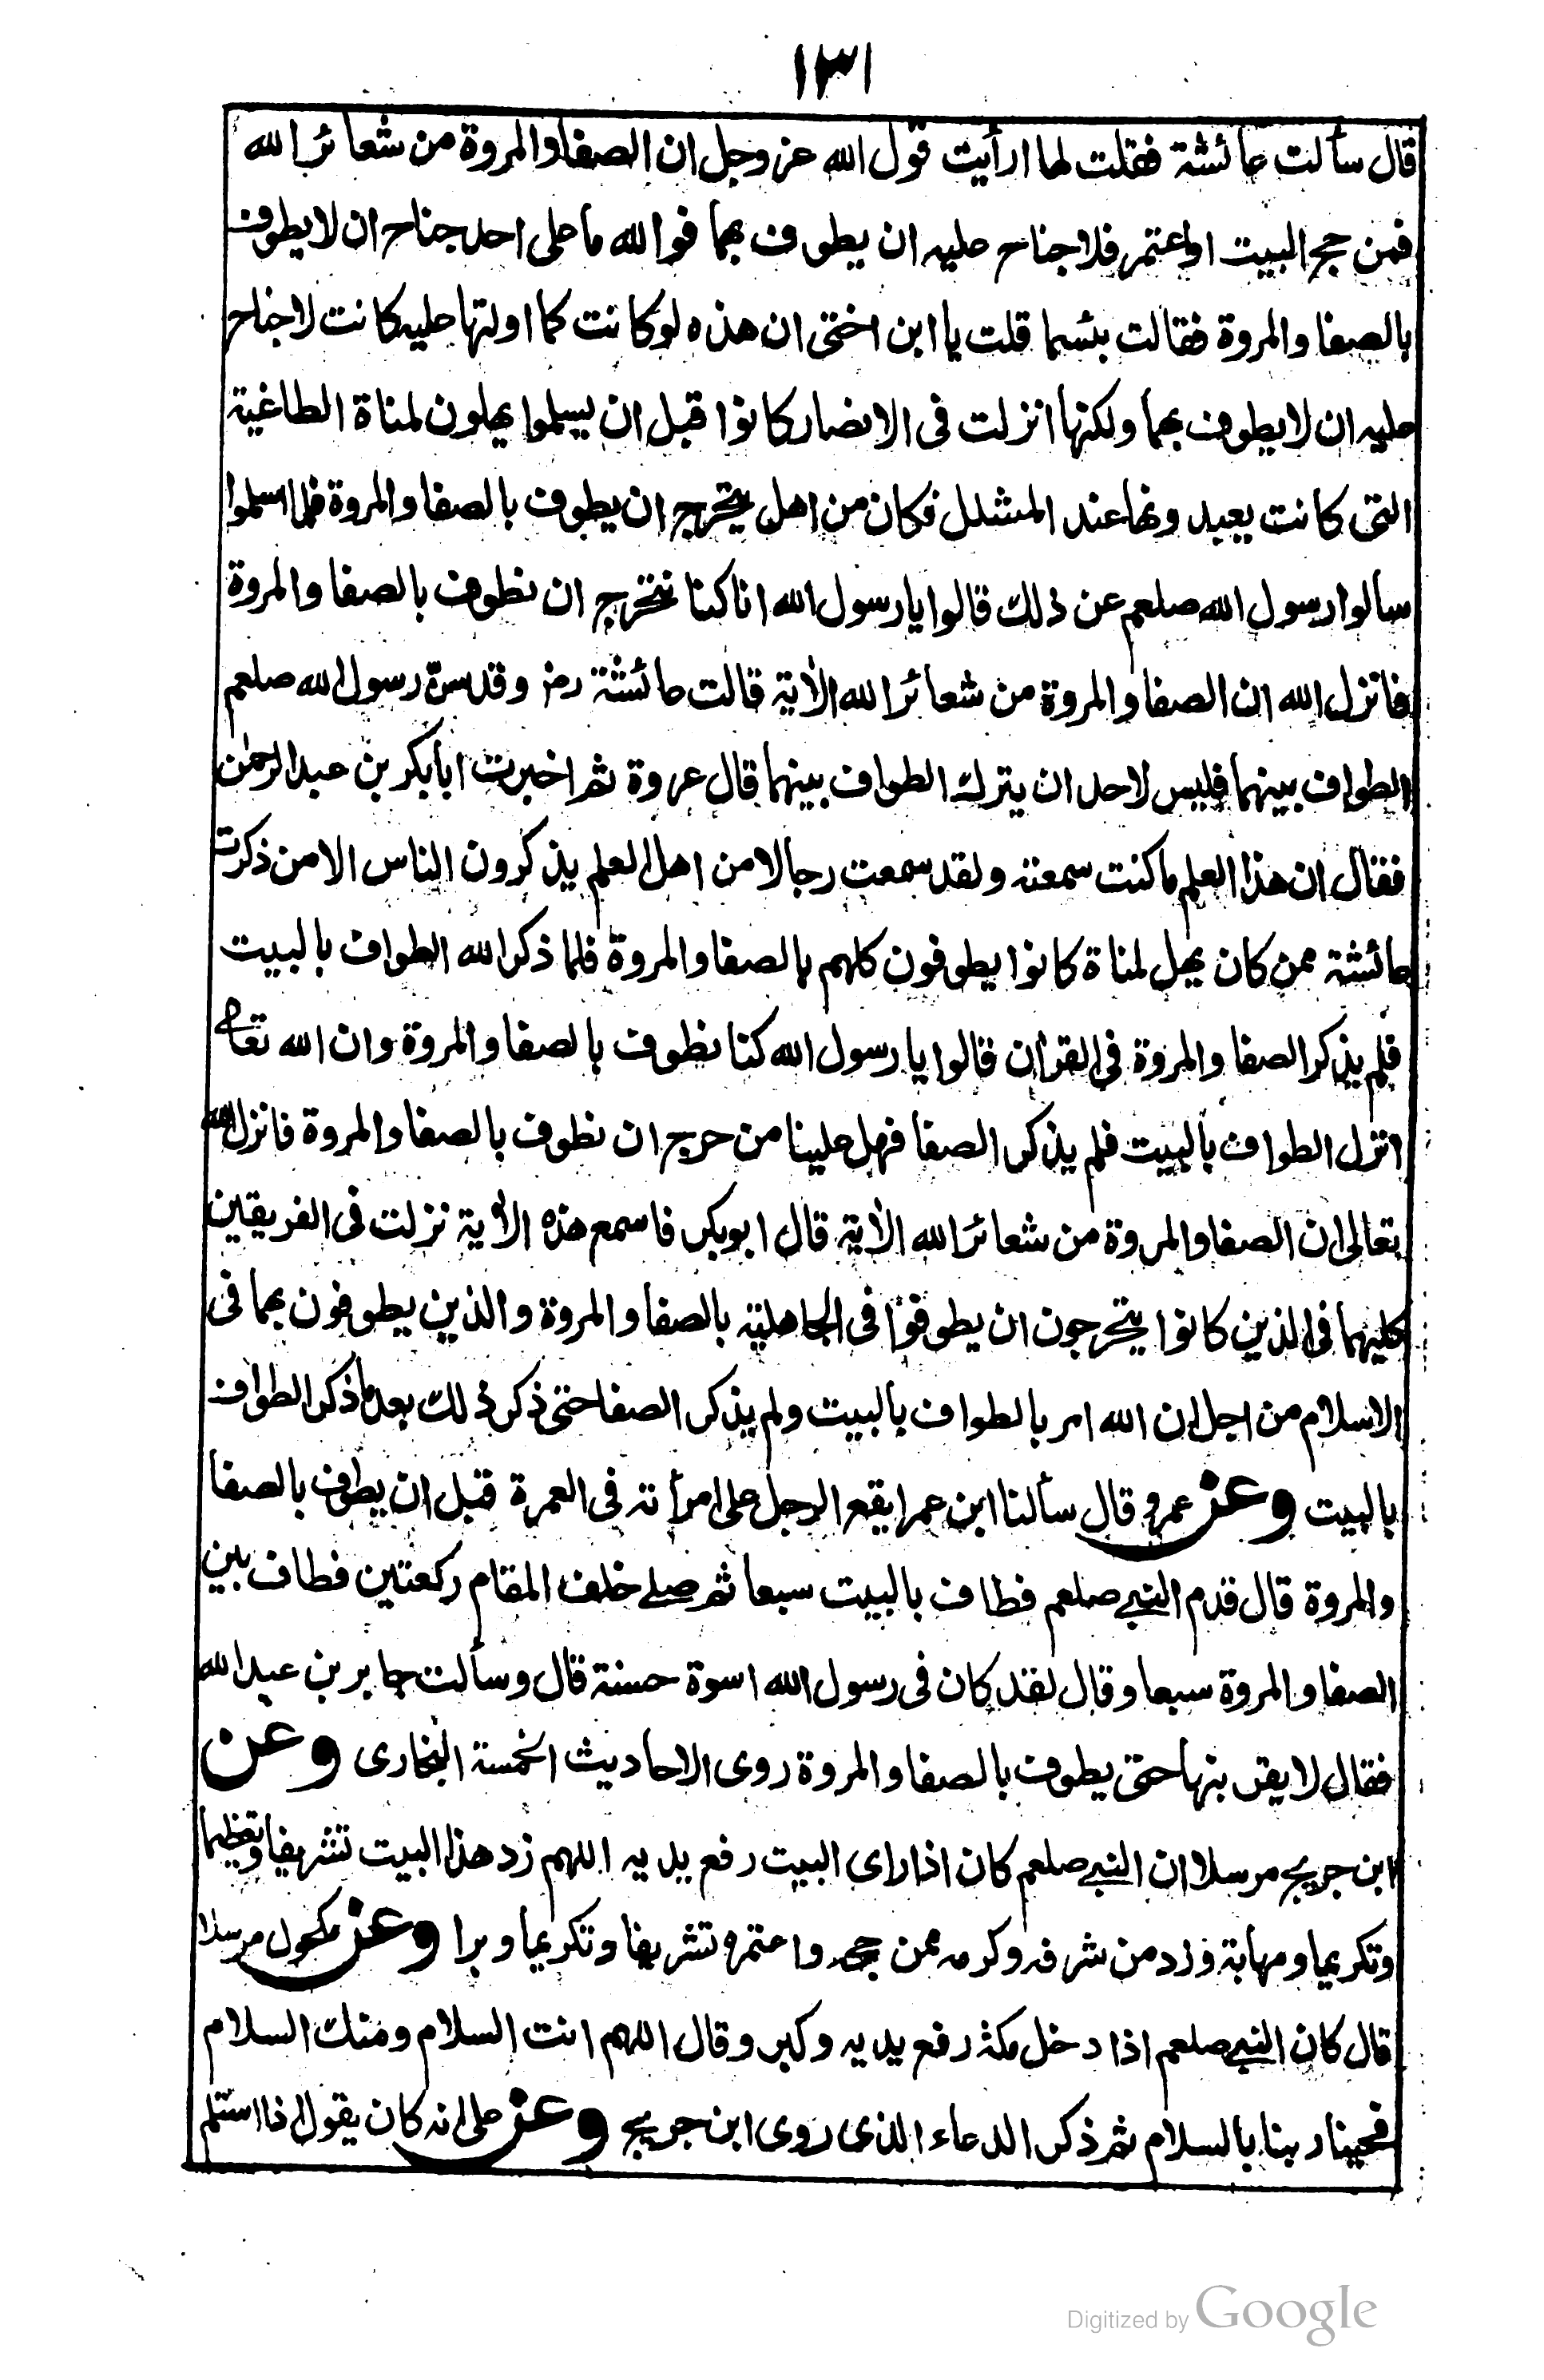 ١٣١
قال سألت عائشة فقلت لها ارأيت قول الله عز وجل ان الصفا والمروة من شعائر الله
فمن حج البيت او اعتمر فلا جناح عليه ان يطوف بهما فوالله ما على احد جناح ان لا يطوف
بالصفا والمروة فقالت بئسما قلت يا ابن اختى ان هذه لو كانت كما اولتها عليه كانت لا جناح
عليه ان لا يطوف بهما ولكنها انزلت فى الانصار كانوا قبل ان يسلموا يهلون لمناة الطاغية
التى كانت يعبدونها عند المشلل فكان من اهل يتحرج ان يطوف بالصفا والمروة فلما اسلموا
سألوا رسول الله صلعم عن ذلك قالوا يا رسول الله انا كنا نتحرج ان نطوف بالصفا والمروة
فانزل الله ان الصفا والمروة من شعائر الله الاٰية قالت عائشة رض وقد سنّ رسول الله صلعم
الطواف بينهما فليس لاحد ان يترك الطواف بينهما قال عروة ثم اخبرت ابا بكر بن عبد الرحمٰن
فقال ان هذا العلم ما كنت سمعته ولقد سمعت رجالا من اهل العلم يذكرون الناس الا من ذكرت
عائشة ممن كان يهل لمناة كانوا يطوفون كلهم بالصفا والمروة فلما ذكر الله الطواف بالبيت
فلم يذكر الصفا والمروة فى القراٰن قالوا يا رسول الله كنا نطوف بالصفا والمروة وان الله تعالى
انزل الطواف بالبيت فلم يذكر الصفا فهل علينا من حرج ان نطوف بالصفا والمروة فانزل الله
تعالى ان الصفا والمروة من شعائر الله الاٰية قال ابو بكر فاسمع هذه الاٰية نزلت فى الفريقين
كليهما فى الذين كانوا يتحرجون ان يطوفوا فى الجاهلية بالصفا والمروة والذين يطوفون بهما فى
الاسلام من اجل ان الله امر بالطواف بالبيت ولم يذكر الصفا حتى ذكر ذلك بعد ما ذكر الطواف
بالبيت وعن عمرو قال سألنا ابن عمر ايقع الرجل على امرأته فى العمرة قبل ان يطوف بالصفا
والمروة قال قدم النبى صلعم فطاف بالبيت سبعا ثم صلى خلف المقام ركعتين فطاف بين
الصفا والمروة سبعا وقال لقد كان فى رسول الله اسوة حسنة قال وسألت جابر بن عبد الله
فقال لا يقربنها حتى يطوف بالصفا والمروة روى الاحاديث الخمسة البخارى وعن
ابن جريج مرسلا ان النبى صلعم كان اذا راى البيت رفع يديه اللهم زد هذا البيت تشريفا وتعظيما
وتكريما ومهابة وزد من شرفه وكرمه ممن حجه واعتمره تشريفا وتكريما وبرا وعن مكحول مرسلا
قال كان النبى صلعم اذا دخل مكة رفع يديه وكبر وقال اللهم انت السلام ومنك السلام
فحينا ربنا بالسلام ثم ذكر الدعاء الذى روى ابن جريج وعن على انه كان يقول اذا استلم
Digitized by Google